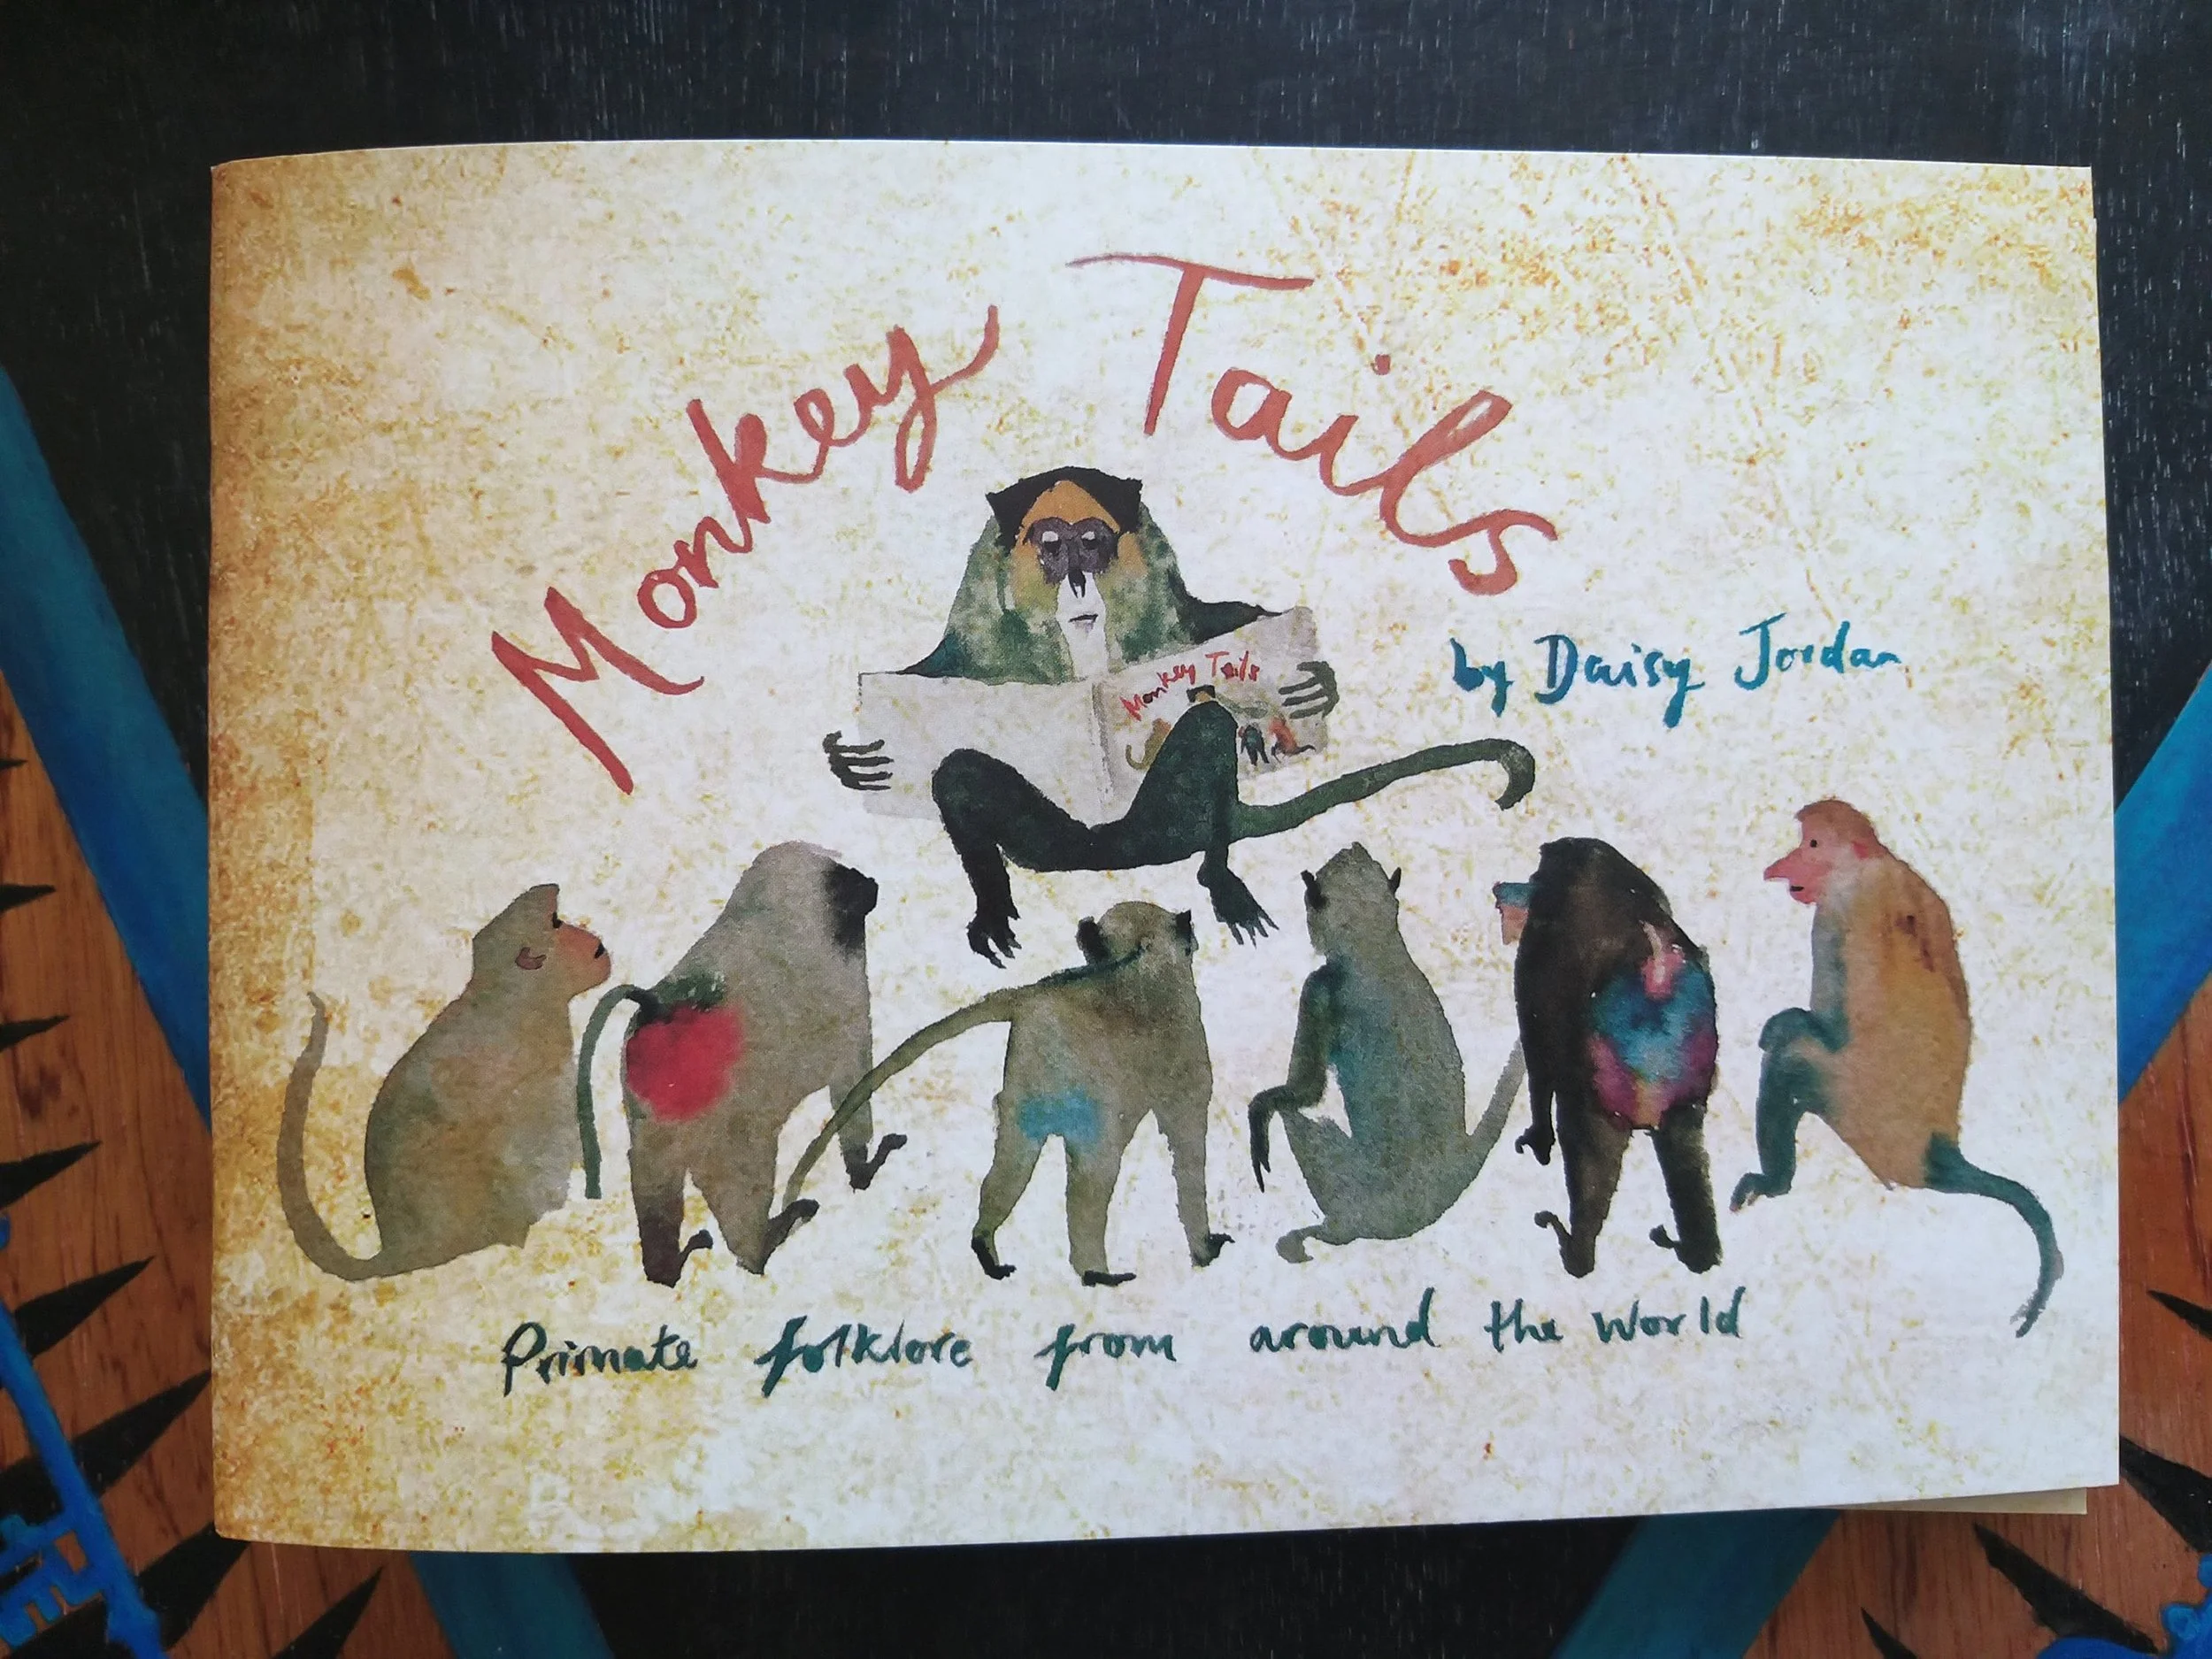 Monkey Tails
by Daisy Jordan
Monkey Tails
Primate folklore from around the World